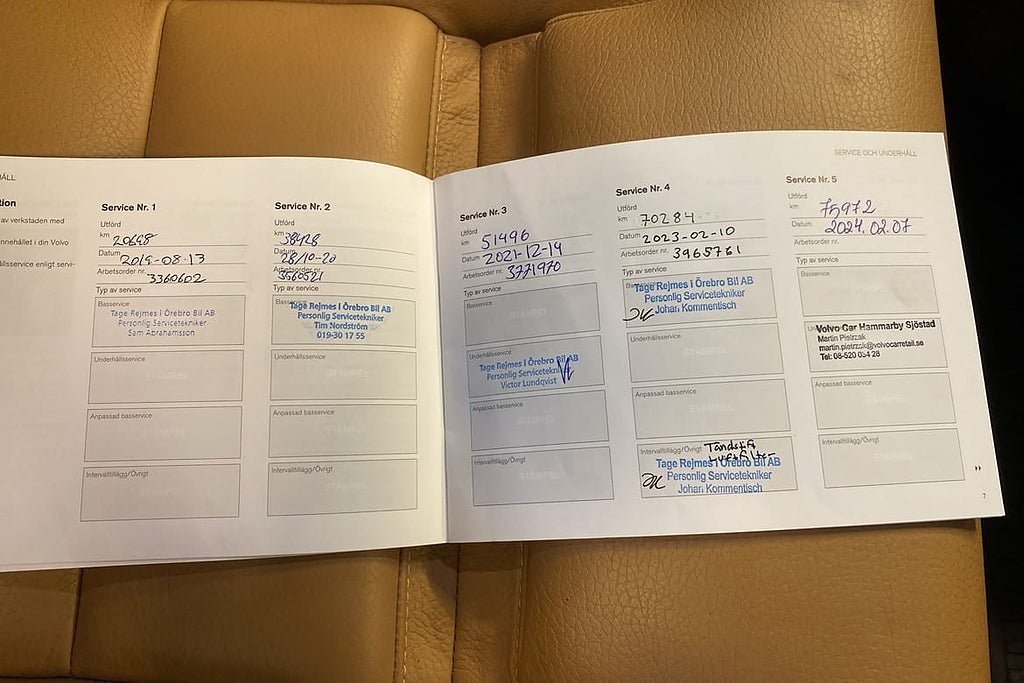 ÄLL
tion
av verkstaden med
innehållet i din Volvo
ållsservice enligt servi-
Service Nr. 1
Utförd
km 20698
Datum 2019-08-13
Arbetsorder nr. 3360602
Typ av service
Basservice
Tage Rejmes I Örebro Bil AB
Personlig Servicetekniker
Sam Abrahamsson
Underhållsservice
STÄMPEL
Anpassad basservice
STÄMPEL
Intervalltillägg/Övrigt
STÄMPEL
Service Nr. 2
Utförd
km 38428
Datum 28/10-20
Arbetsorder nr. 3560521
Typ av service
Basservice
Tage Rejmes I Örebro Bil AB
Personlig Servicetekniker
Tim Nordström
019-30 17 55
Underhållsservice
STÄMPEL
Anpassad basservice
STÄMPEL
Intervalltillägg/Övrigt
STÄMPEL
SERVICE OCH UNDERHÅLL
Service Nr. 3
Utförd
km 51496
Datum 2021-12-14
Arbetsorder nr. 3771970
Typ av service
Basservice
STÄMPEL
Underhållsservice
Tage Rejmes I Örebro Bil AB
Personlig Servicetekniker
Victor Lundqvist
Anpassad basservice
STÄMPEL
Intervalltillägg/Övrigt
STÄMPEL
Service Nr. 4
Utförd
km 70284
Datum 2023-02-10
Arbetsorder nr. 3965761
Typ av service
Tage Rejmes I Örebro Bil AB
Personlig Servicetekniker
Johan Kommentisch
Underhållsservice
STÄMPEL
Anpassad basservice
STÄMPEL
Intervalltillägg/Övrigt Tändst
Luftfilter
Tage Rejmes I Örebro Bil AB
Personlig Servicetekniker
Johan Kommentisch
Service Nr. 5
Utförd
km 75972
Datum 2024.02.07
Arbetsorder nr.
Typ av service
Basservice
STÄMPEL
Volvo Car Hammarby Sjöstad
Martin Pietrzak
martin.pietrzak@volvocarretail.se
Tel: 08-520 034 28
Anpassad basservice
STÄMPEL
Intervalltillägg/Övrigt
STÄMPEL
7